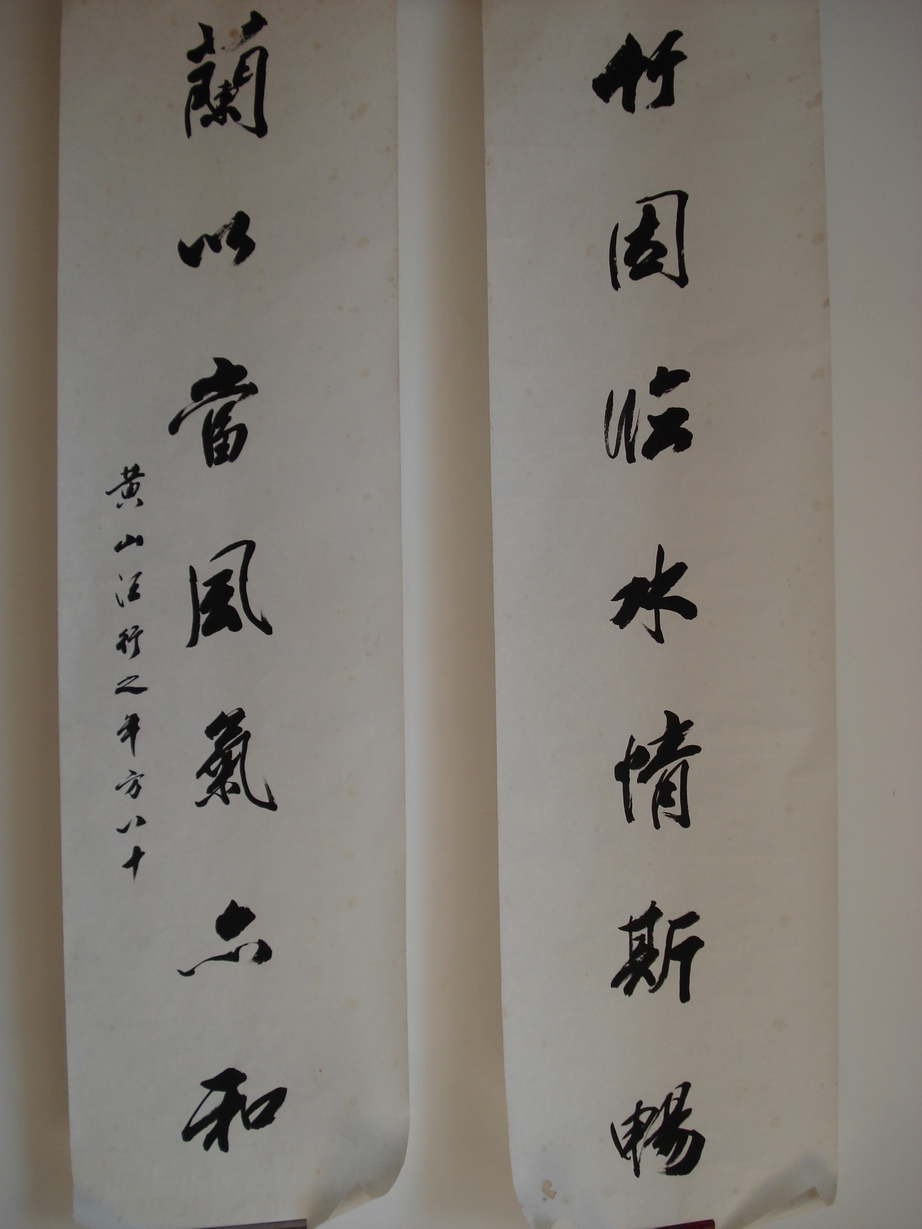 竹固临水情斯暢
蘭以當風氣亦和
黄山汪行之年方八十